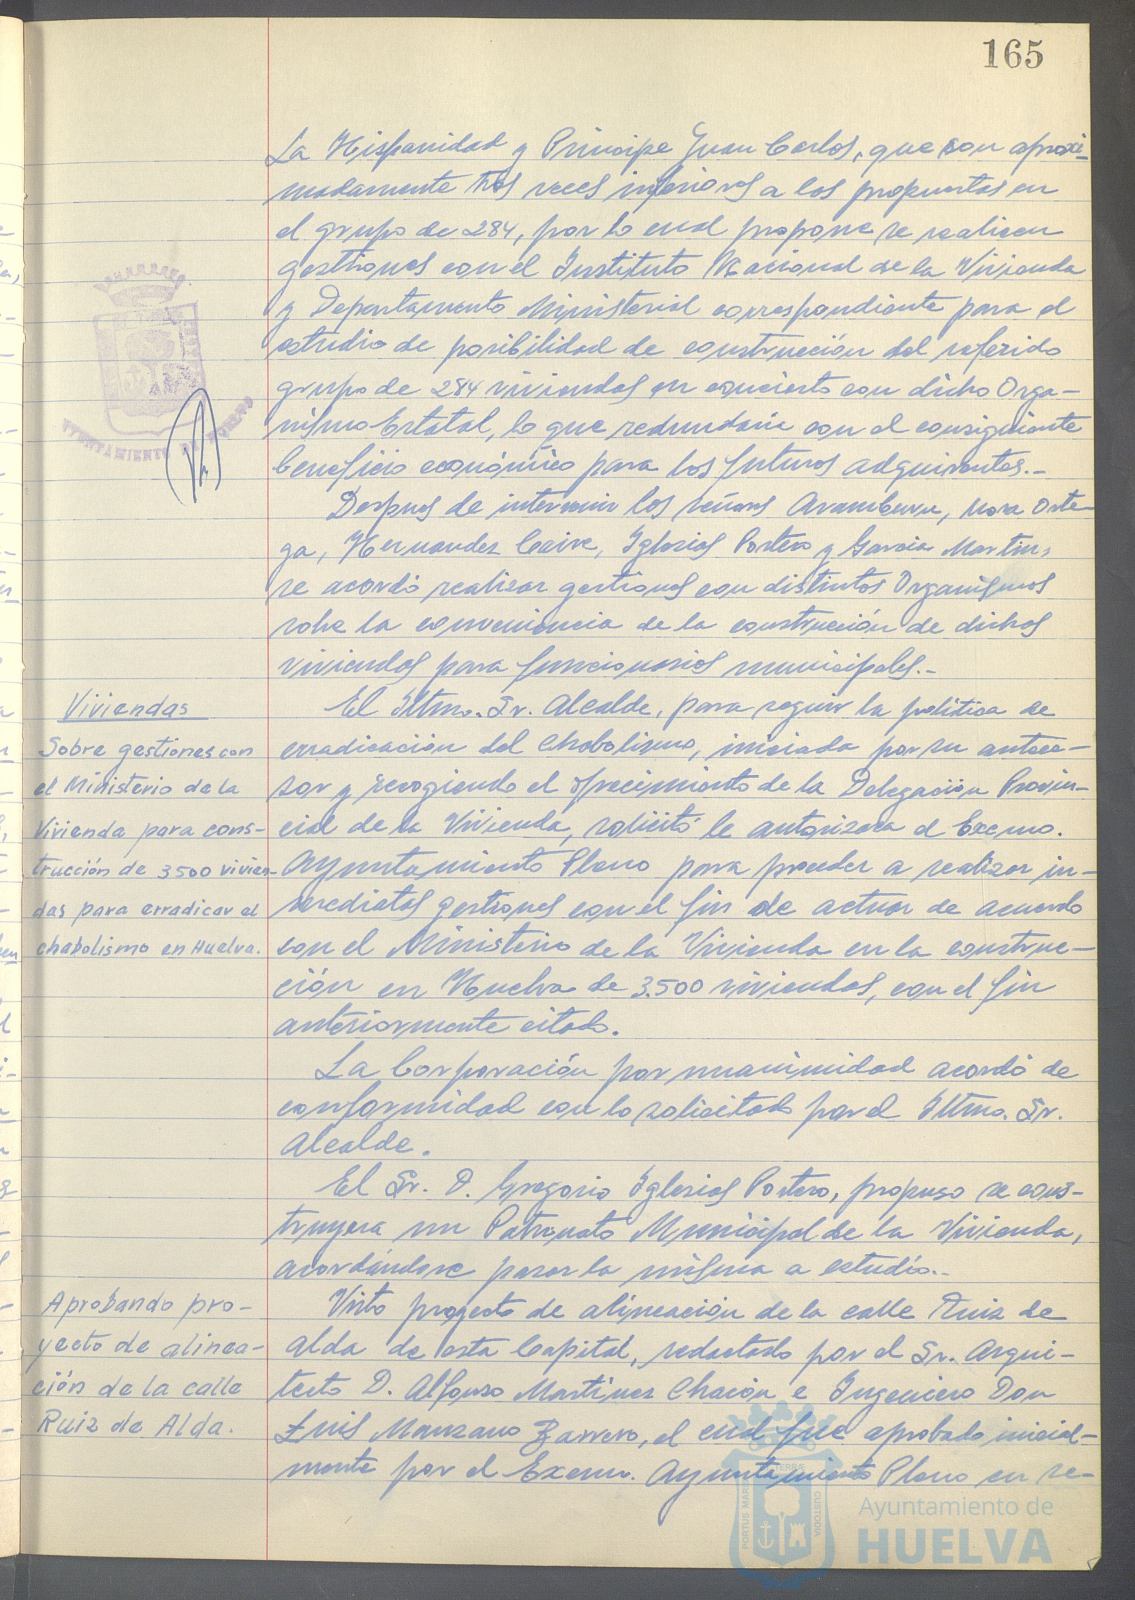 165
La Hispanidad y Principe Juan Carlos, que son aproxi-
madamente tres veces inferiores a los propuestos en
el grupo de 284, por lo cual propone se realicen
gestiones con el Instituto Nacional de la Vivienda
y Departamento Ministerial correspondiente para el
estudio de posibilidad de construcción del referido
grupo de 284 viviendas en concierto con dicho Orga-
nismo Estatal, lo que redundaria con el consiguiente
beneficio económico para los futuros adquirentes.-
Despues de intervenir los señores Aramburu, Mora Orte-
ga, Hernandez Caire, Iglesias Portero y Garcia Martin,
se acordó realizar gestiones con distintos Organismos
sobre la conveniencia de la construcción de dichas
viviendas para funcionarios municipales.-
Viviendas
Sobre gestiones con
el Ministerio de la
Vivienda para cons-
trucción de 3500 vivien-
das para erradicar el
chabolismo en Huelva.
El Iltmo. Sr. Alcalde, para seguir la politica de
erradicación del chabolismo, iniciada por su antece-
sor y recogiendo el ofrecimiento de la Delegación Provin-
cial de la Vivienda, solicitó le autorizara el Excmo.
Ayuntamiento Pleno para proceder a realizar in-
mediatas gestiones con el fin de actuar de acuerdo
con el Ministerio de la Vivienda en la construc-
ción en Huelva de 3.500 viviendas, con el fin
anteriormente citado.
La Corporación por unanimidad acordó de
conformidad con lo solicitado por el Iltmo. Sr.
Alcalde.
El Sr. D. Gregorio Iglesias Portero, propuso se cons-
truyera un Patronato Municipal de la Vivienda,
acordándose pasar la misma a estudio.-
Aprobando pro-
yecto de alinea-
ción de la calle
Ruiz de Alda.
Visto proyecto de alineación de la calle Ruiz de
Alda de esta Capital, redactado por el Sr. Arqui-
tecto D. Alfonso Martinez Chacón e Ingeniero Don
Luis Manzano Barrero, el cual fue aprobado inicial-
mente por el Excmo. Ayuntamiento Pleno en se-
AYUNTAMIENTO DE
PORTUS MARIS ET TERRAE CUSTODIA
Ayuntamiento de
HUELVA